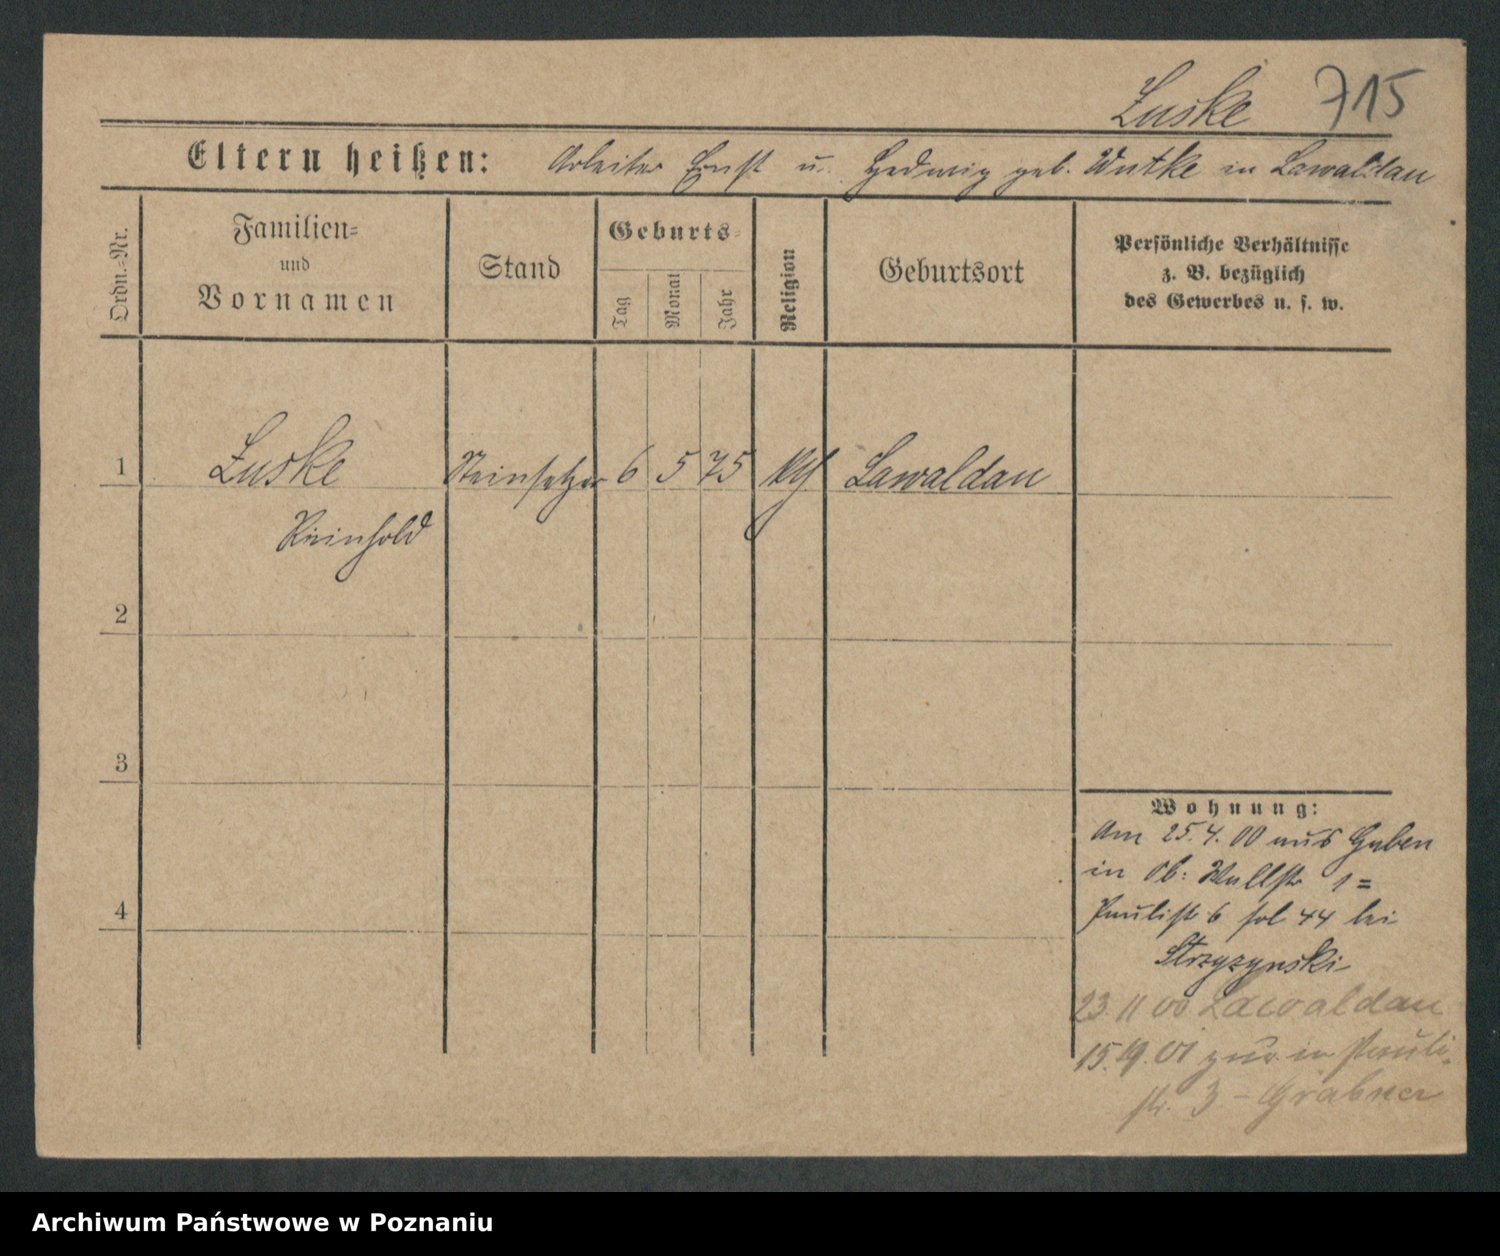 Luske 715
Eltern heißen: Arbeiter Ernst u. Hedwig geb. Wutke in Lawaldau
Ordn.-Nr.
Familien-
und
Vornamen
Stand
Geburts-
Tag
Monat
Jahr
Religion
Geburtsort
Persönliche Verhältnisse
z. B. bezüglich
des Gewerbes u. s. w.
1 Luske Steinsetzer 6 5 75 Lawaldau
Reinhold
2
3
4
Wohnung:
Am 25.4.00 aus Guben
in Ob: Wallstr 1 =
Paulistr 6 bei
Strzyzynski
23 11 00 Lawaldau
15. 01 zur. in Pauli-
str. 3 - Grabner
Archiwum Państwowe w Poznaniu